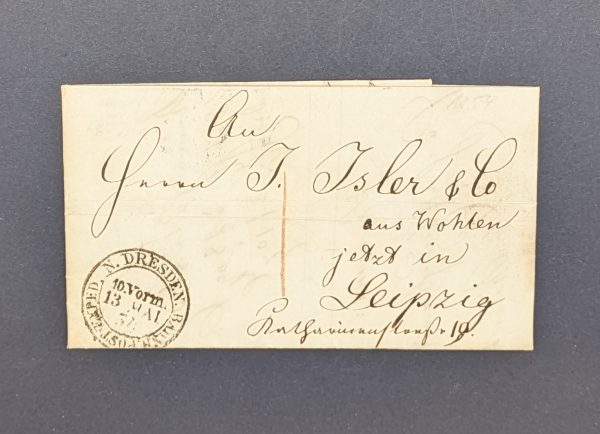 An
Herrn J. Isler & Co
aus Wohlen
jetzt in
Leipzig
Katharinenstraße 19.
N. DRESDEN BAHNH. POST-EXPED
10.Vorm.
13 MAI